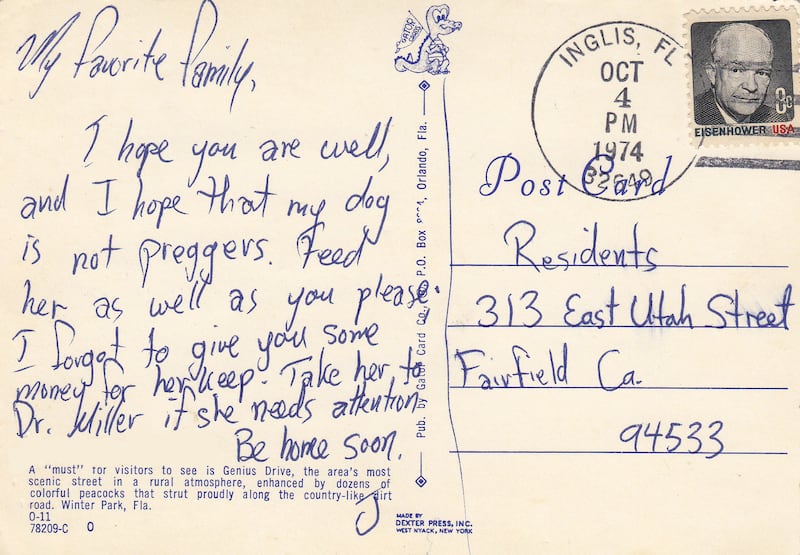 My favorite family,
I hope you are well,
and I hope that my dog
is not preggers. Feed
her as well as you please.
I forgot to give you some
money for her keep. Take her to
Dr. Miller if she needs attention
Be home soon.
J
A "must" for visitors to see is Genius Drive, the area's most
scenic street in a rural atmosphere, enhanced by dozens of
colorful peacocks that strut proudly along the country-like dirt
road. Winter Park, Fla.
O-11
78209-C O
GATOR
CARDS
Pub. by Gator Card Co., P.O. Box Orlando, Fla.
MADE BY
DEXTER PRESS, INC.
WEST NYACK, NEW YORK
INGLIS, FL
OCT
4
PM
1974
32649
8c
EISENHOWER USA
Post Card
Residents
313 East Utah Street
Fairfield Ca.
94533